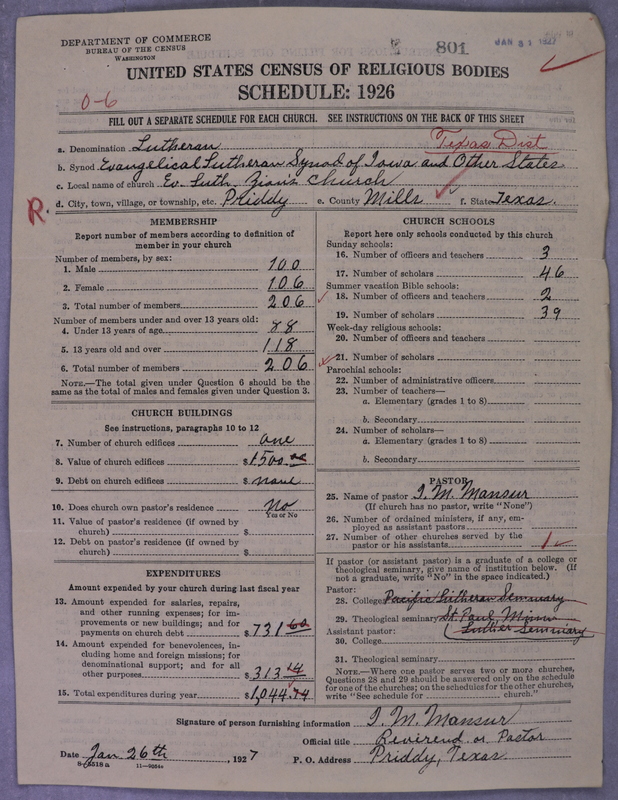 DEPARTMENT OF COMMERCE
BUREAU OF THE CENSUS
WASHINGTON
801
JAN 31 1927
UNITED STATES CENSUS OF RELIGIOUS BODIES
SCHEDULE: 1926
0-6
FILL OUT A SEPARATE SCHEDULE FOR EACH CHURCH. SEE INSTRUCTIONS ON THE BACK OF THIS SHEET
Texas Dist
a. Denomination Lutheran
b. Synod Evangelical Lutheran Synod of Iowa and Other States
c. Local name of church Ev. Luth. Zion's Church
R.
d. City, town, village, or township, etc. Priddy e. County Mills f. State Texas.
MEMBERSHIP
Report number of members according to definition of
member in your church
Number of members, by sex:
1. Male 100
2. Female 106
3. Total number of members 206
Number of members under and over 13 years old:
4. Under 13 years of age 88
5. 13 years old and over 118
6. Total number of members 206
NOTE.—The total given under Question 6 should be the
same as the total of males and females given under Question 3.
CHURCH BUILDINGS
See instructions, paragraphs 10 to 12
7. Number of church edifices one
8. Value of church edifices $1500.00
9. Debt on church edifices $ none
10. Does church own pastor's residence No
Yes or No
11. Value of pastor's residence (if owned by
church) $
12. Debt on pastor's residence (if owned by
church) $
EXPENDITURES
Amount expended by your church during last fiscal year
13. Amount expended for salaries, repairs,
and other running expenses; for im-
provements or new buildings; and for
payments on church debt $731 60
14. Amount expended for benevolences, in-
cluding home and foreign missions; for
denominational support; and for all
other purposes $313 14
15. Total expenditures during year $1,044.74
CHURCH SCHOOLS
Report here only schools conducted by this church
Sunday schools:
16. Number of officers and teachers 3
17. Number of scholars 46
Summer vacation Bible schools:
18. Number of officers and teachers 2
19. Number of scholars 39
Week-day religious schools:
20. Number of officers and teachers
21. Number of scholars
Parochial schools:
22. Number of administrative officers
23. Number of teachers—
a. Elementary (grades 1 to 8)
b. Secondary
24. Number of scholars—
a. Elementary (grades 1 to 8)
b. Secondary
PASTOR
25. Name of pastor I. M. Mansur
(If church has no pastor, write "None")
26. Number of ordained ministers, if any, em-
ployed as assistant pastors
27. Number of other churches served by the
pastor or his assistants 1
If pastor (or assistant pastor) is a graduate of a college or
theological seminary, give name of institution below. (If
not a graduate, write "No" in the space indicated.)
Pastor:
28. College Pacific Lutheran Seminary
29. Theological seminary St. Paul, Minn
Assistant pastor: (Luther Seminary
30. College
31. Theological seminary
NOTE.—Where one pastor serves two or more churches,
Questions 28 and 29 should be answered only on the schedule
for one of the churches; on the schedules for the other churches,
write "See schedule for church."
Signature of person furnishing information I. M. Mansur
Official title Reverend or Pastor
Date Jan. 26th, 1927 P. O. Address Priddy, Texas.
8-5518 a 11—9554a